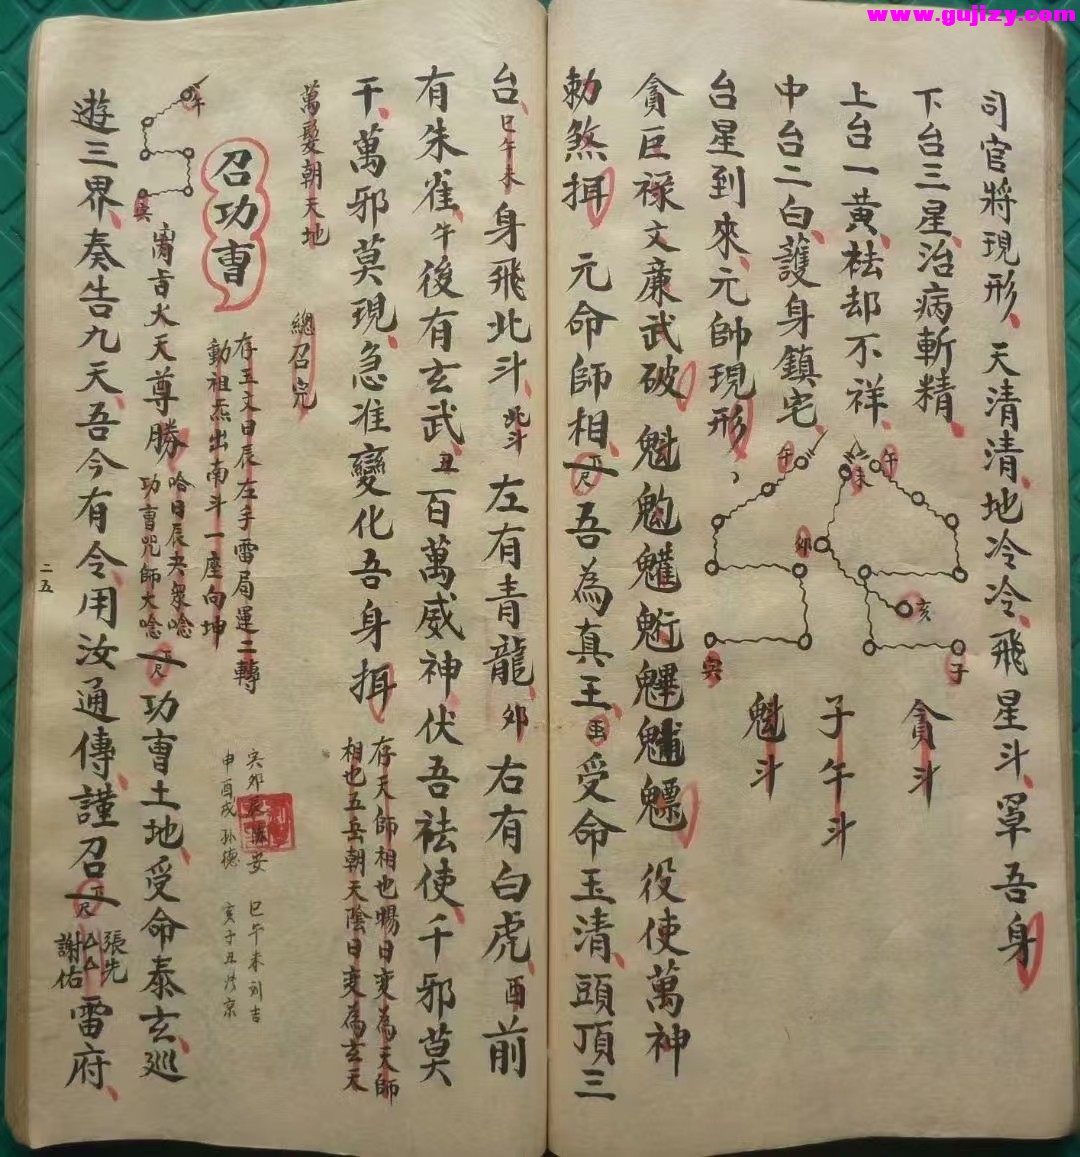 www.gujizy.com
司官將現形、天清清、地冷冷、飛星斗、罩吾身
下台三星、治病斬精、
上台一黃、祛却不祥、
中台二白、護身鎮宅、
台星到來、元帥現形、
午
未
午
卯
亥
子
貪斗
子午斗
魁斗
貪巨祿文廉武破 魁䰢魓役使萬神
勅煞揖 元命師相 吾為真王、受命玉清、頭頂三
台、巳午未身飛北斗、北斗左有青龍、卯右有白虎、酉前
有朱雀、午後有玄武、丑百萬威神、伏吾祛使、千邪莫
干、萬邪莫現、急准變化吾身揖
存天師相也暘日变為天師
相也五岳朝天陰日变為玄天
萬髮朝天地 總召完
召功曹
存玉文日辰左手雷局運二轉
動祖炁出南斗一座向坤
申酉戌
巳午未
亥子丑
午
天尊勝
功曹咒師大唸
功曹土地、受命泰玄、巡
遊三界、奏告九天、吾今有令、用汝通傳、謹召
張先
謝佑
雷府、
二五